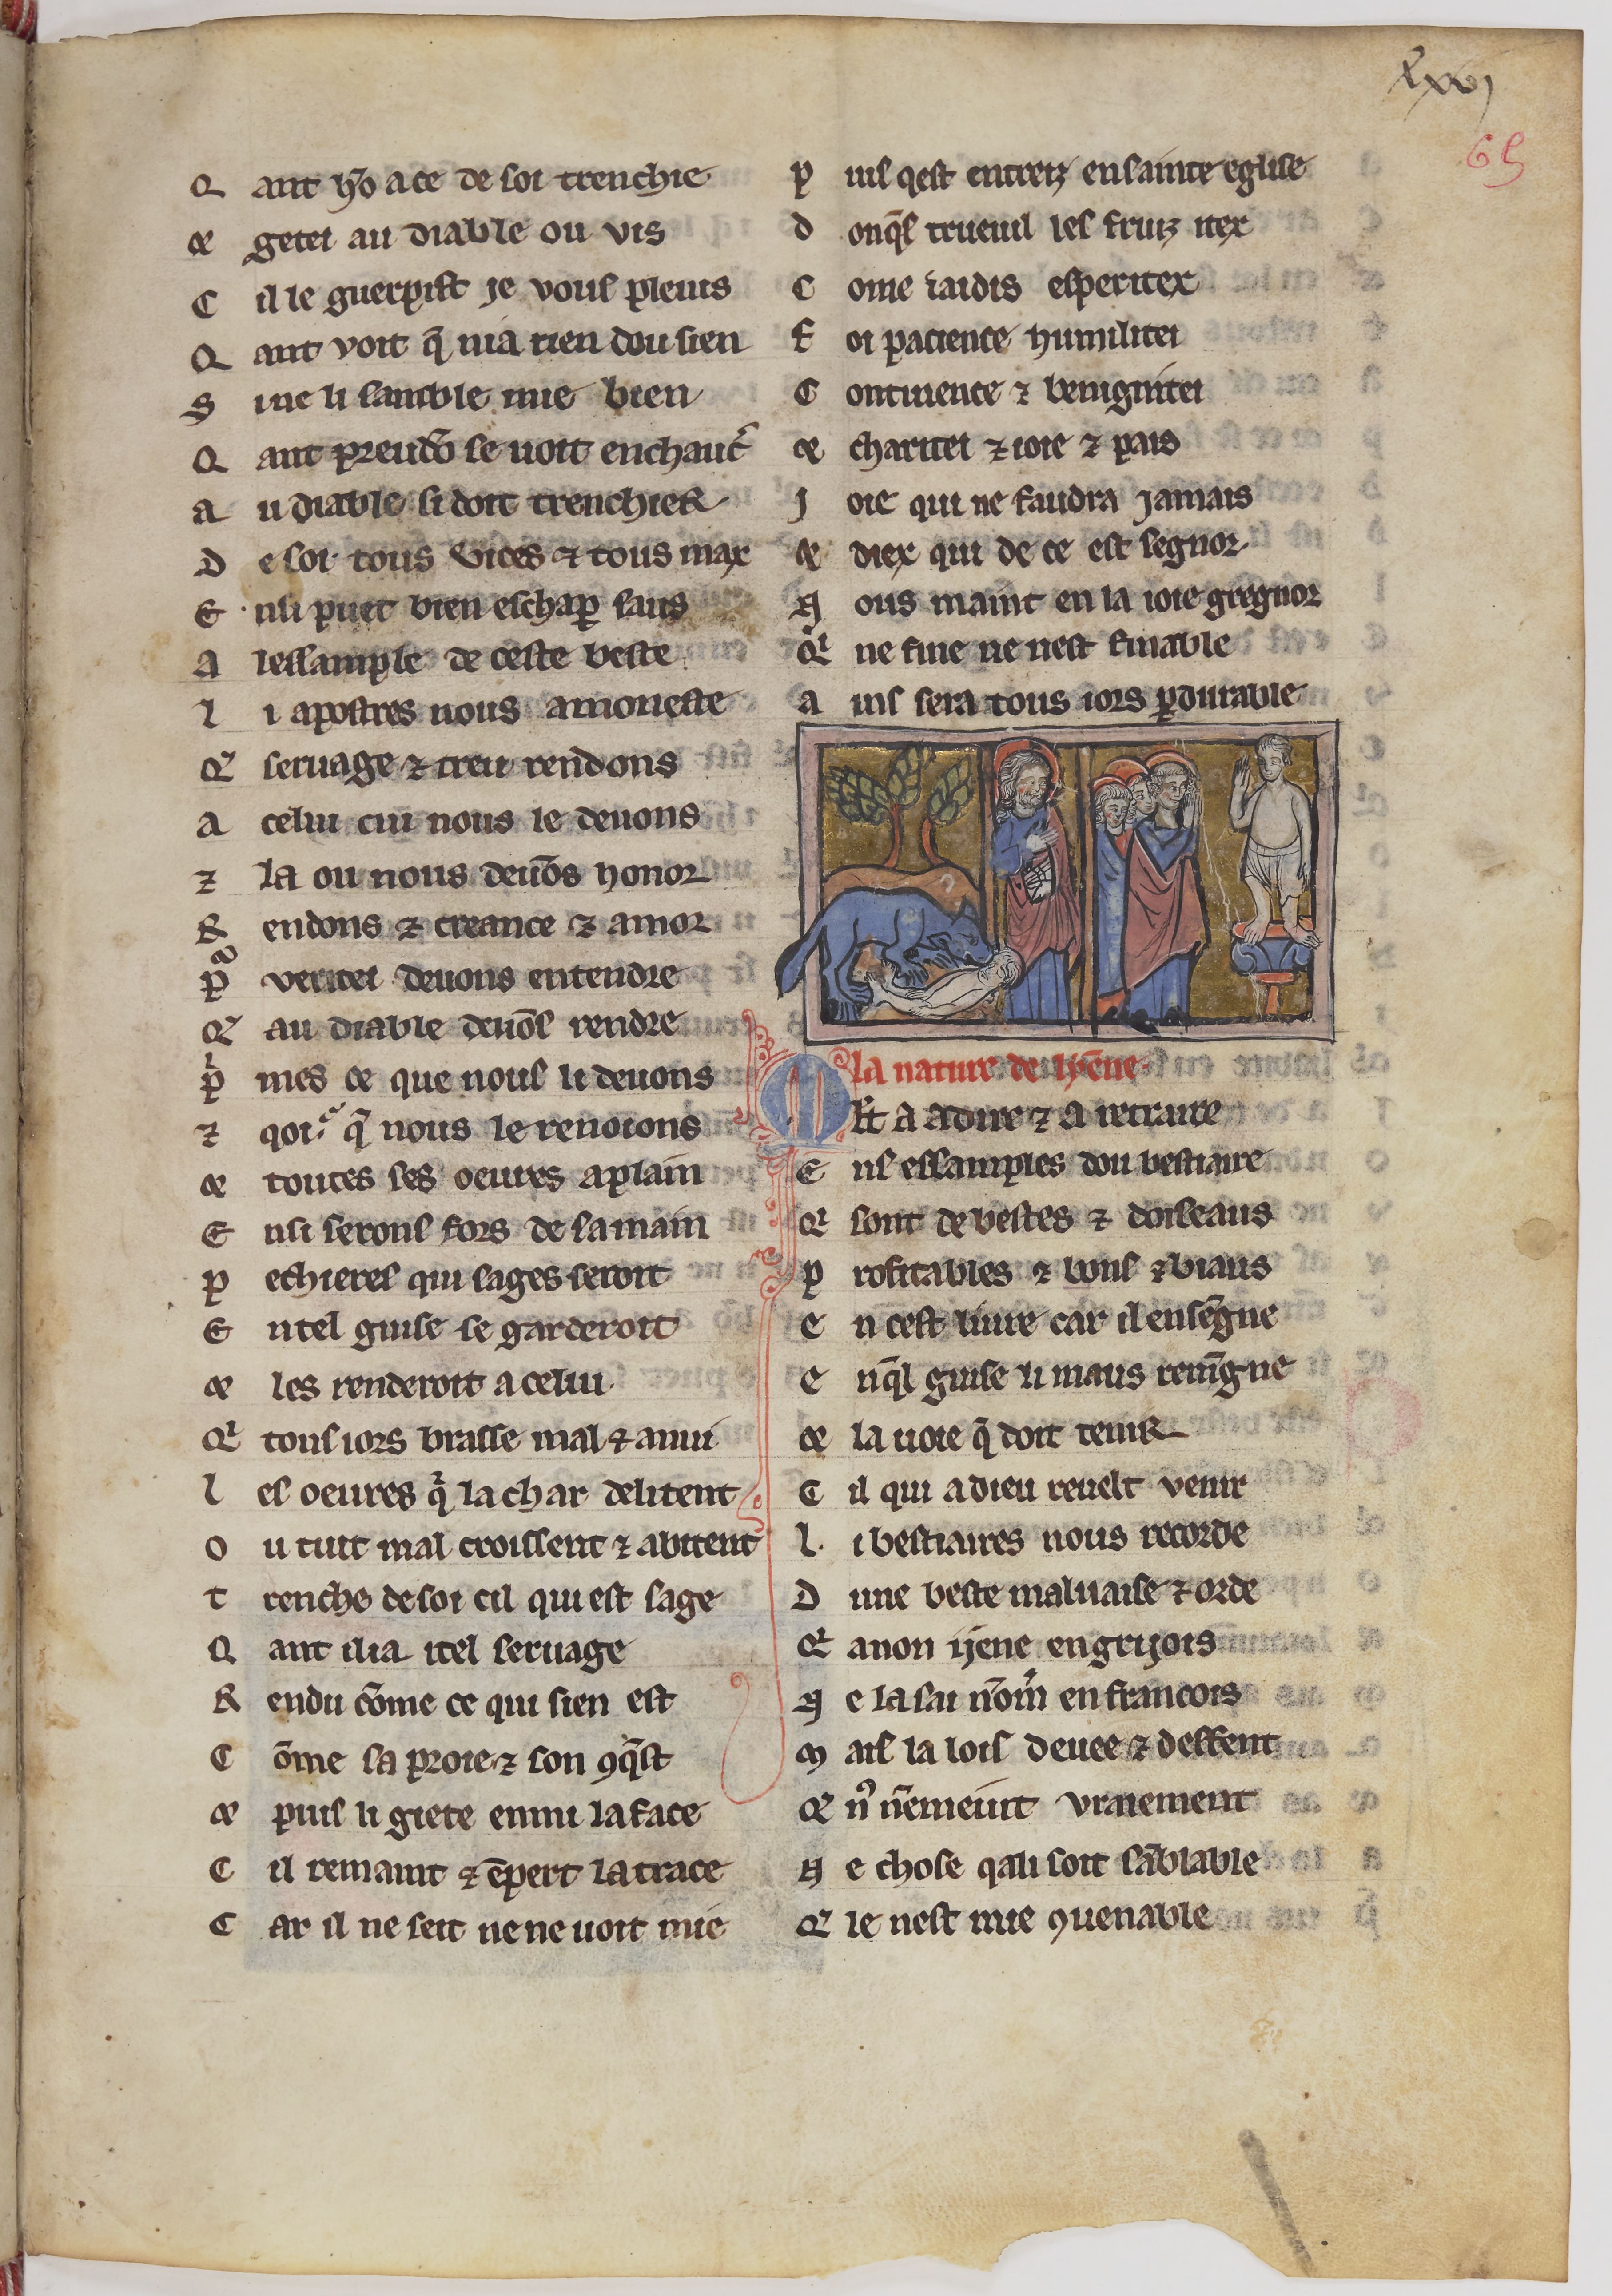 lxxvj
65
Q ant hō a ce de soi trenchie
⁊ getei au diable ou vis
C il le guerpist je vous pleuis
Q ant voit q̄ nia rien dou sien
S i ne li samble mie bien
Q ant preudō se uoit enchauc̄
a u diable si doit trenchier
D e soi tous vices ⁊ tous max
E nsi puet bien eschap̄ saus
A lessample de ceste beste
l i apostres nous amoneste
Q̉ seruage ⁊ treu rendons
a celui cui nous le deuons
⁊ la ou nous deuōs honor
R endons ⁊ creance ⁊ amor
p̄ veritei deuons entendre
Q̉ au diable deuōs rendre
p̉ mes ce que nous li deuons
⁊ qoi. ce q̄ nous le renoions
⁊ toutes ses oeures a plain
E nsi serons fors de sa main
p echieres qui sages seroit
E n tel guise se garderoit
⁊ les renderoit a celui
Q̉ tous iors brasse mal ⁊ anui
l es oeures q̉ la char delitent
O u tuit mal croissent ⁊ abitent
T renche de soi cil qui est sage
Q ant il ia itel seruage
R endu cōme ce qui sien est
C ōme sa proie ⁊ son ꝯq̄st
⁊ puis li giete enmi la face
C il remaint ⁊ ēpert la trace
C ar il ne seit ne ne uoit mie
p uis qest entreiz en sainte eglise
d onq̄s trueuil les fruiz itex
C ome iaidis esperitex
F oi pacience humilitei
C ontinence ⁊ benignitei
⁊ charitei ⁊ ioie ⁊ pais
J oie qui ne faudra jamais
⁊ diex qui de ce est segnor
N ous maint en la ioie gregnor
Q̉ ne fine ne nest finable
a ins sera tous iors ꝑdurable
la nature de lyēne
M lt a a dire ⁊ a retraire
E ns essamples dou bestiaire
Q̉ sont de bestes ⁊ doiseaus
p rofitables ⁊ bons ⁊ biaus
E n cest liure car il ensēgne
E n q̄l guise li maus remīgne
⁊ la uoie q̄ doit tenir
C il qui a dieu reuelt venir
l i bestiaires nous recorde
D une beste maluaise ⁊ orde
Q̉ a non ijene en grijois
N e la sai nōm̉ en francois
M ais la lois deuee ⁊ deffent
Q̉ n̉ nemeiut vraiement
N e chose qa li soit sāblable
Q̉ le nest mie ꝯuenable